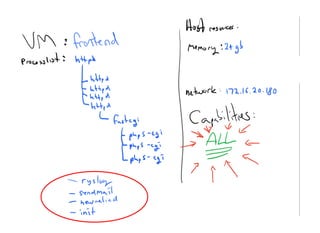 VM: frontend
Processlist: httpd
httpd
httpd
httpd
httpd
fastcgi
php5-cgi
php5-cgi
php5-cgi
- rsyslog
- sendmail
- init
Host resources.
Memory: 24gb
network: 172.16.20.180
Capabilities:
ALL